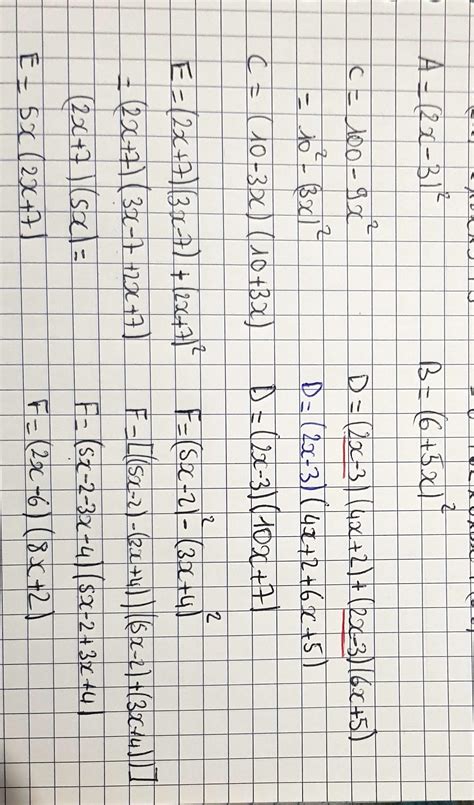 A = (2x-3)²
B = (6+5x)²
C = 100 - 9x²
= 10² - (3x)²
C = (10-3x)(10+3x)
D = (2x-3)(4x+2)+(2x-3)(6x+5)
D = (2x-3)(4x+2+6x+5)
D = (2x-3)(10x+7)
E = (2x+7)(3x-7)+(2x+7)²
= (2x+7)(3x-7+2x+7)
(2x+7)(5x) =
E = 5x(2x+7)
F = (5x-2)² - (3x+4)²
F = [(5x-2)-(3x+4))((5x-2)+(3x+4))]
F = (5x-2-3x+4)(5x-2+3x+4)
F = (2x-6)(8x+2)